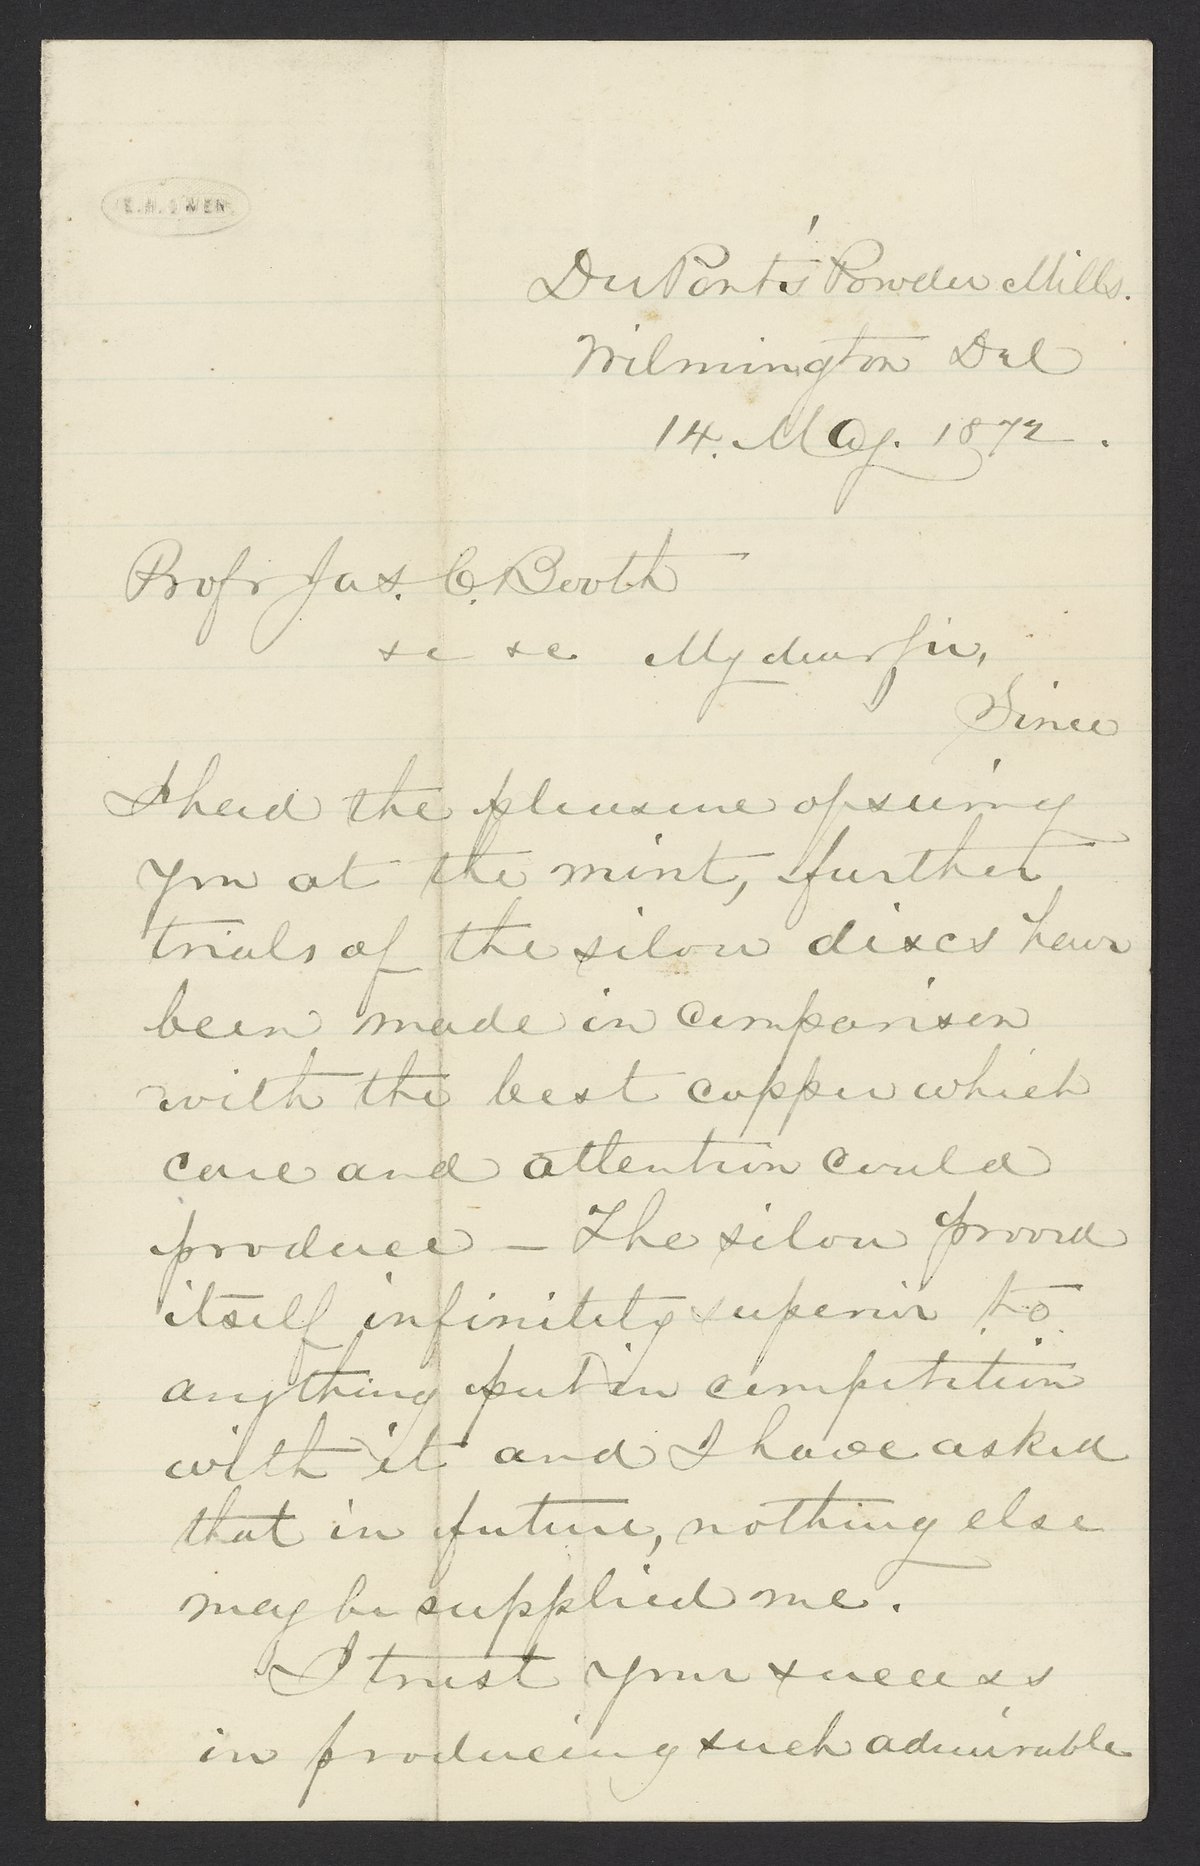 E. H. OWEN
DuPont's Powder Mills.
Wilmington Del
14. May. 1872.
Profr Jas. C. Booth
&c &c. My dear Sir,
Since
I had the pleasure of seeing
you at the mint, further
trials of the silver discs have
been made in comparison
with the best copper which
care and attention could
produce – The silver proved
itself infinitely superior to
anything put in competition
with it and I have asked
that in future, nothing else
may be supplied me.
I trust your success
in producing such admirable